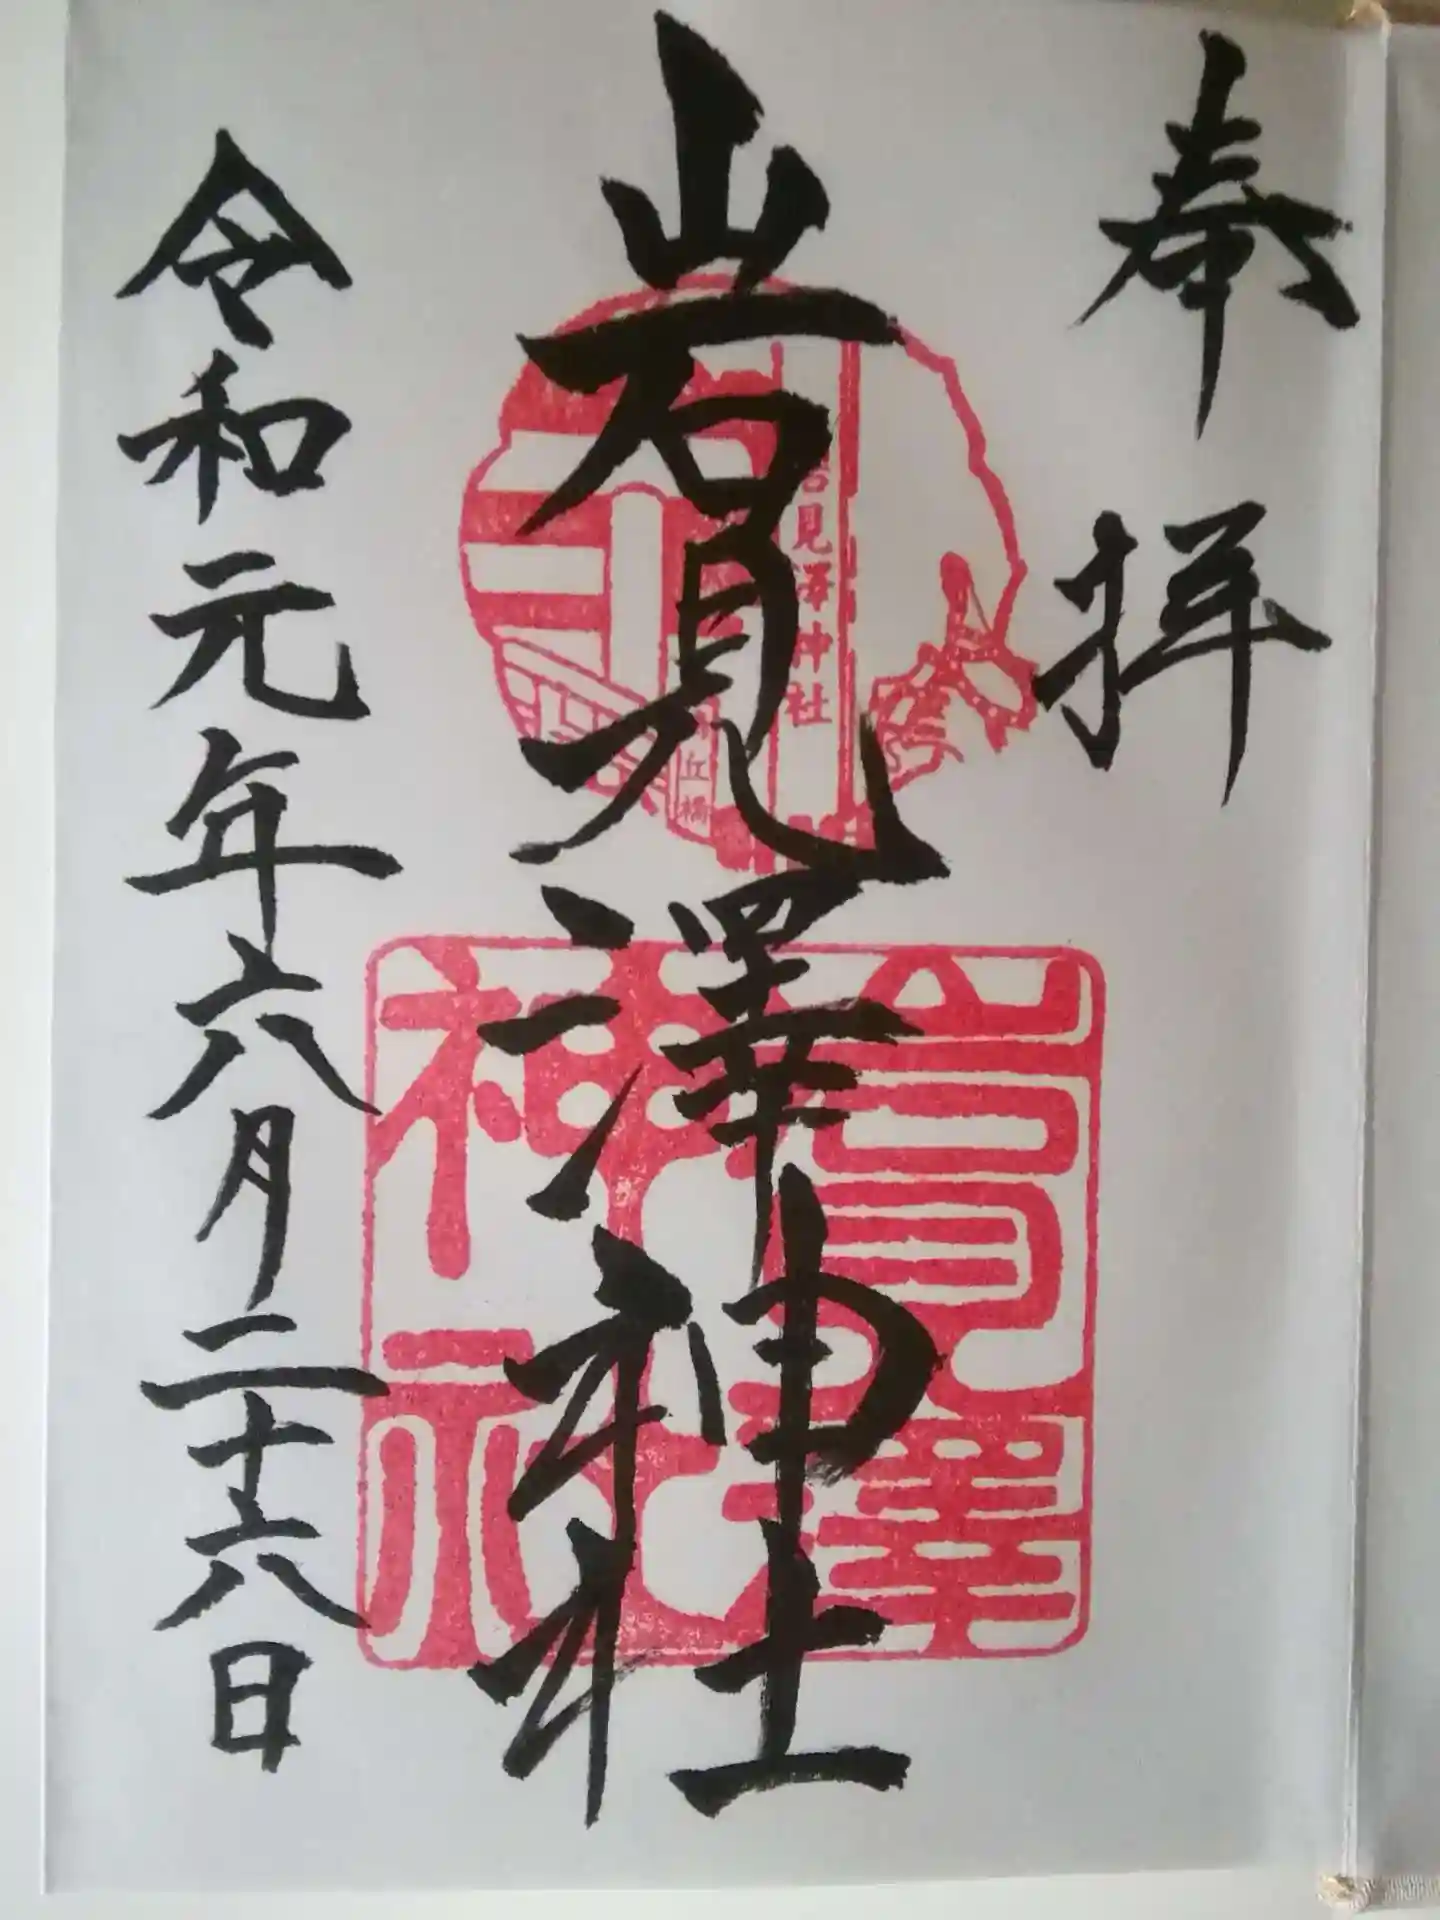 奉拝
岩見澤神社
令和元年六月二十六日
岩見澤神社
丘橋
岩見澤神社